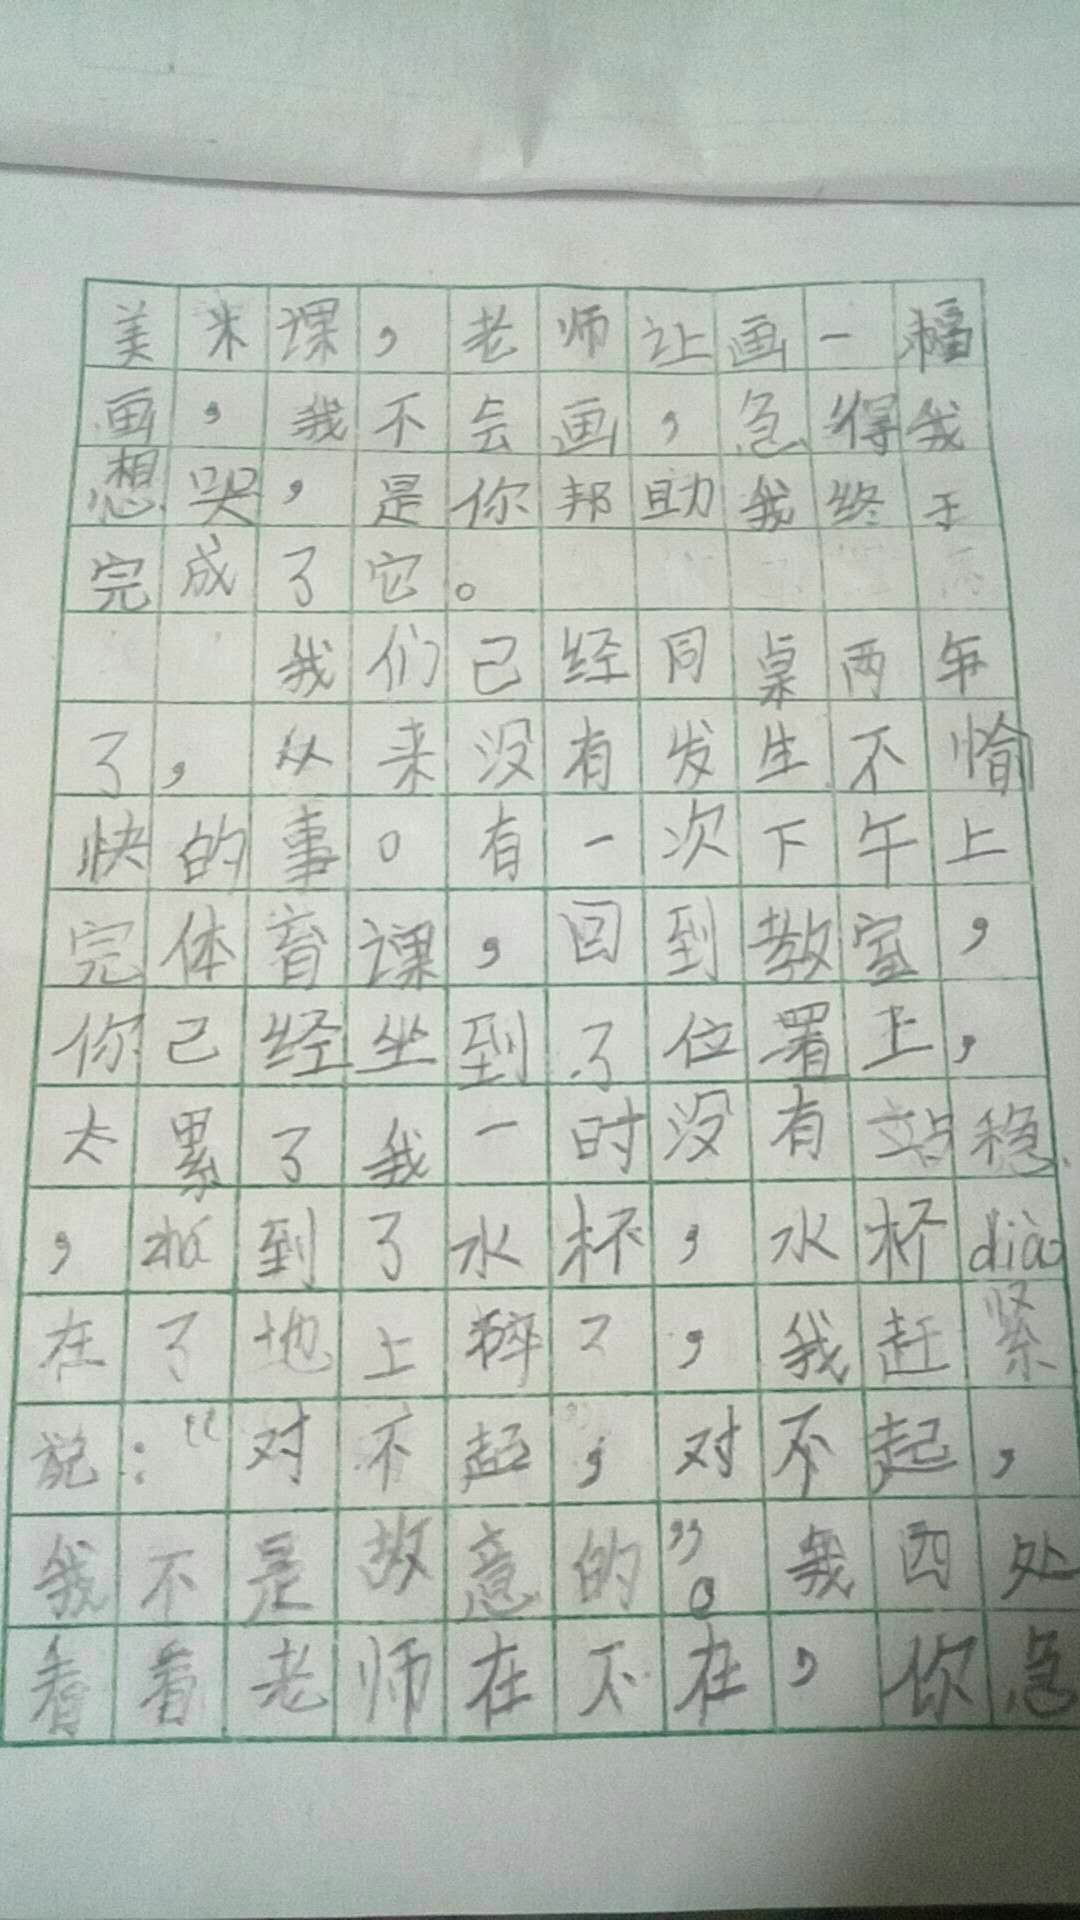 美术课，老师让画一幅
画，我不会画，急得我
想哭，是你帮助我终于
完成了它。
我们已经同桌两年
了，从来没有发生不愉
快的事。有一次下午上
完体育课，回到教室，
你已经坐到了位置上，
太累了我一时没有站稳
，到了水杯，水杯diào
在了地上碎了，我赶紧
说：“对不起，对不起，
我不是故意的”。我四处
看看老师在不在，你急